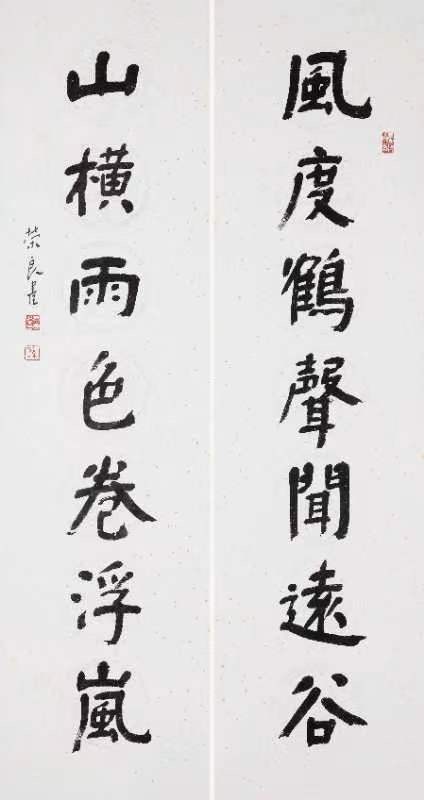 風度鶴聲聞遠谷
山橫雨色卷浮嵐
榮良書